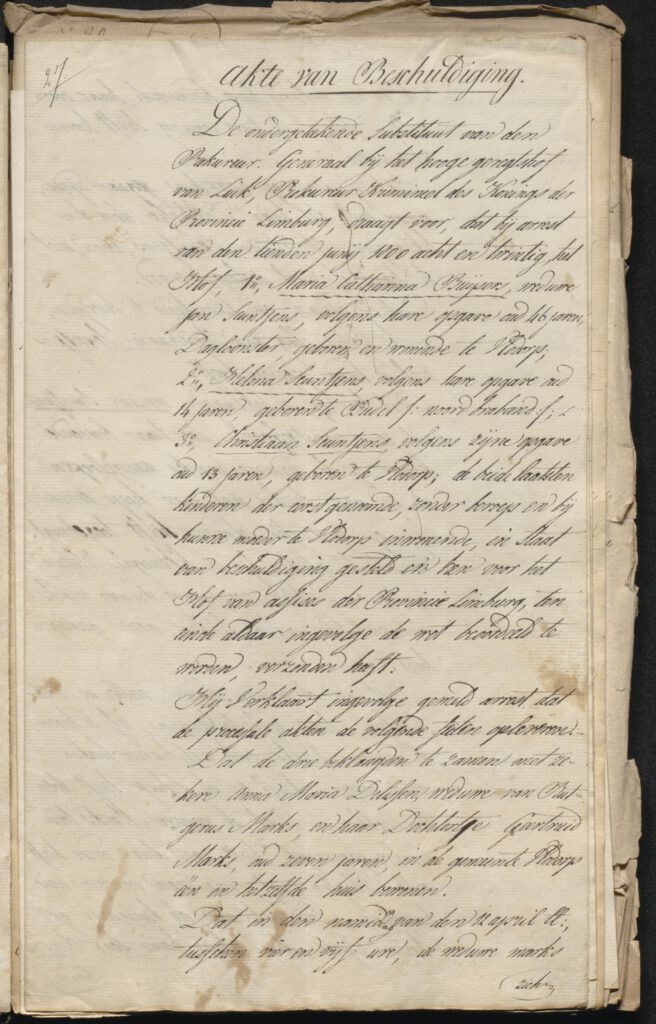 27
Akte van Beschuldiging.
De ondergetekende Substituut van den
Prokureur-Generaal bij het hooge geregtshof
van Luik, Prokureur Krimineel des Konings der
Provincie Limburg, draagt voor, dat bij arrest
van den tienden junij 1800 acht en twintig, het
Hof, 1º, Maria Catharina Buysen, weduwe
jan Suntjens, volgens hare opgave oud 46 jaren,
Dagloonster, geboren en wonende te Stdorp;
2º, Helena Suntjens, volgens hare opgave oud
14 jaren, geboren te Budel /: noord braband :/; &
3º, Christiaan Suntjens, volgens zijne opgave
oud 13 jaren, geboren te Stdorp; de beide laatsten
kinderen der eerstgenoemde, zonder beroep en bij
hunne moeder te Stdorp inwonende, in staat
van beschuldiging gesteld en hen voor het
Hof van assises der Provincie Limburg, ten
einde aldaar ingevolge de wet beoordeeld te
werden, verzonden heeft.
Hij Verklaart ingevolge gemeld arrest dat
de processale akten de volgende feiten opleveren.
Dat de drie beklaagden te zamen met ze-
kere Anna Maria Delissen, weduwe van Rut-
gerus Marks, en haar Dochtertje Geertruid
Marks, oud zeven jaren, in de gemeente Stdorp
een en hetzelfde huis bewonen.
Dat in den namidd. van den 12 april ll.,
tusschen vier en vijf ure, de weduwe marks
zich